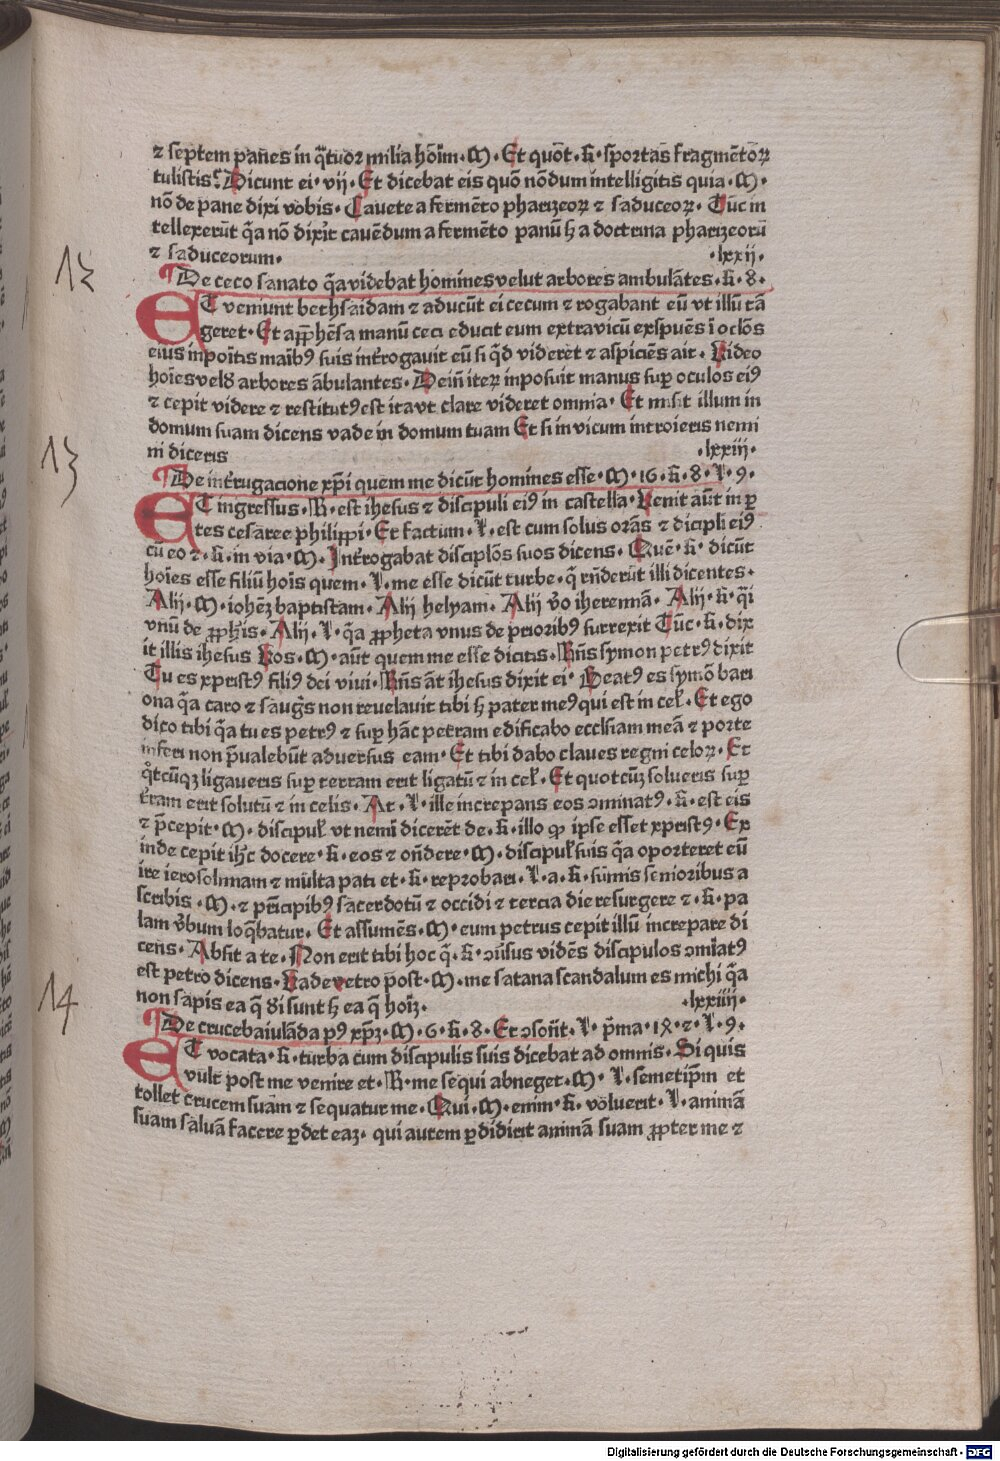 ⁊ septem panes in q̄tuoꝛ milia hoı̄m·M·Et quōt·k·sportas fragmētoꝝ
tulistis: Dicunt ei·vij·Et dicebat eis quō nōdum intelligitis quia·M·
nō de pane dixi vobis·Cauete a fermēto pharizeoꝝ ⁊ saduceoꝝ·Tūc in
tellexerūt q̄a nō dixit cauēdum a fermēto panū ꜩ a doctrina pharizeorū
⁊ saduceorum· ·lxxij·
De ceco sanato q̄a videbat homines velut arbores ambulātes·k·8·
12
ET veniunt bethsaidam ⁊ aducūt ei cecum ⁊ rogabant eū vt illū tā
geret·Et apꝓhēsa manū ceci educit eum extra vicū exspuēs ī oclōs
eius inpoītis maībꝰ suis intr̄ogauit eū si q̄d videret ⁊ aspiciēs ait·Video
hoı̄es velꝺ arbores ābulantes·Deiñ iteꝝ inposuit manus suꝑ oculos eiꝰ
⁊ cepit videre ⁊ restitutꝰ est ita vt clare videret omnia·Et misit illum in
domum suam dicens vade in domum tuam Et si in vicum introieris nemi
ni diceris ·lxxiij·
13
De intr̄ugacione xp̄i quem me dicūt homines esse·M·16·k·8·L·9·
ET ingressus·R·est ihesus ⁊ discipuli eiꝰ in castella·Venit aūt in ꝑ
tes cesaree philippi·Et factum·L·est cum solus orās ⁊ dicipli eiꝰ
cū eo ⁊·k·in via·M·Intr̄ogabat disciplōs suos dicens·Quē·k·dicūt
hoı̄es esse filiū hoı̄s quem·L·me esse dicūt turbe·q̄ rn̄derūt illi dicentes·
Alij·M·iohēꝫ baptistam·Alij helyam·Alij v̄o iheremiā·Alij·k·q̄i
vnū de ꝓph̄is·Alij·L·q̄a ꝓpheta vnus de prioribꝰ surrexit Tūc·k·dix
it illis ihesus Vos·M·aūt quem me esse dicitis·Rn̄s symon petrꝰ dixit
Tu es xpristꝰ filiꝰ dei viui·Rn̄s āt ihesus dixit ei·Beatꝰ es symō bari
ona q̄a caro ⁊ sāug̓s non reuelauit tibi ꜩ pater meꝰ qui est in cel̓·Et ego
dico tibi q̄a tu es petrꝰ ⁊ suꝑ hāc petram edificabo ecclsiam meā ⁊ porte
inferi non p̄ualebūt aduersus eam·Et tibi dabo claues regni celoꝝ·Et
q̊tcūqꝫ ligaueris suꝑ terram erit ligatū ⁊ in cel̓·Et quotcūꝫ solueris suꝑ
tr̄am erit solutū ⁊ in celis·At·L·ille increpans eos ↄminatꝰ·k·est eis
⁊ p̄cepit·M·discipul̓ vt nemī dicerēt de·k·illo ꝙ ipse esset xpristꝰ·Ex
inde cepit ih̄c docere·k·eos ⁊ on̄dere·M·discipul̓ suis q̄a oporteret eū
ire ierosolimam ⁊ multa pati et·k·repꝛobari·L·a·k·sūmis senioribus a
scribis·M·⁊ prīcipibꝰ sacerdotū ⁊ occidi ⁊ tercia die resurgere ⁊·k·pa
lam v̄bum loq̄batur·Et assumēs·M·eum petrus cepit illū increpare di
cens·Absit a te·Non erit tibi hoc q̄·k·ↄūsus vidēs discipulos ↄmīatꝰ
est petro dicens·Vade retro post·M·me satana scandalum es michi q̄a
non sapis ea q̄ ꝺi sunt ꜩ ea q̄ hoı̄ꝫ· ·lxxiiij·
14
De cruce baiulāda pꝰ xp̄ꝫ·M·6·k·8·Et ↄsoñt·L·p̄ma·1ꝵ·⁊·L·9·
ET vocata·k·turba cum discipulis suis dicebat ad omnis·Si quis
vult post me venire et·R·me sequi abneget·M·L·semetip̄m et
tollet crucem suam ⁊ sequatur me·Qui·M·enim·k·voluerit·L·animā
suam saluā facere ꝑdet eaꝫ·qui autem ꝑdidirit animā suam ꝓpter me ⁊
Digitalisierung gefördert durch die Deutsche Forschungsgemeinschaft - DFG